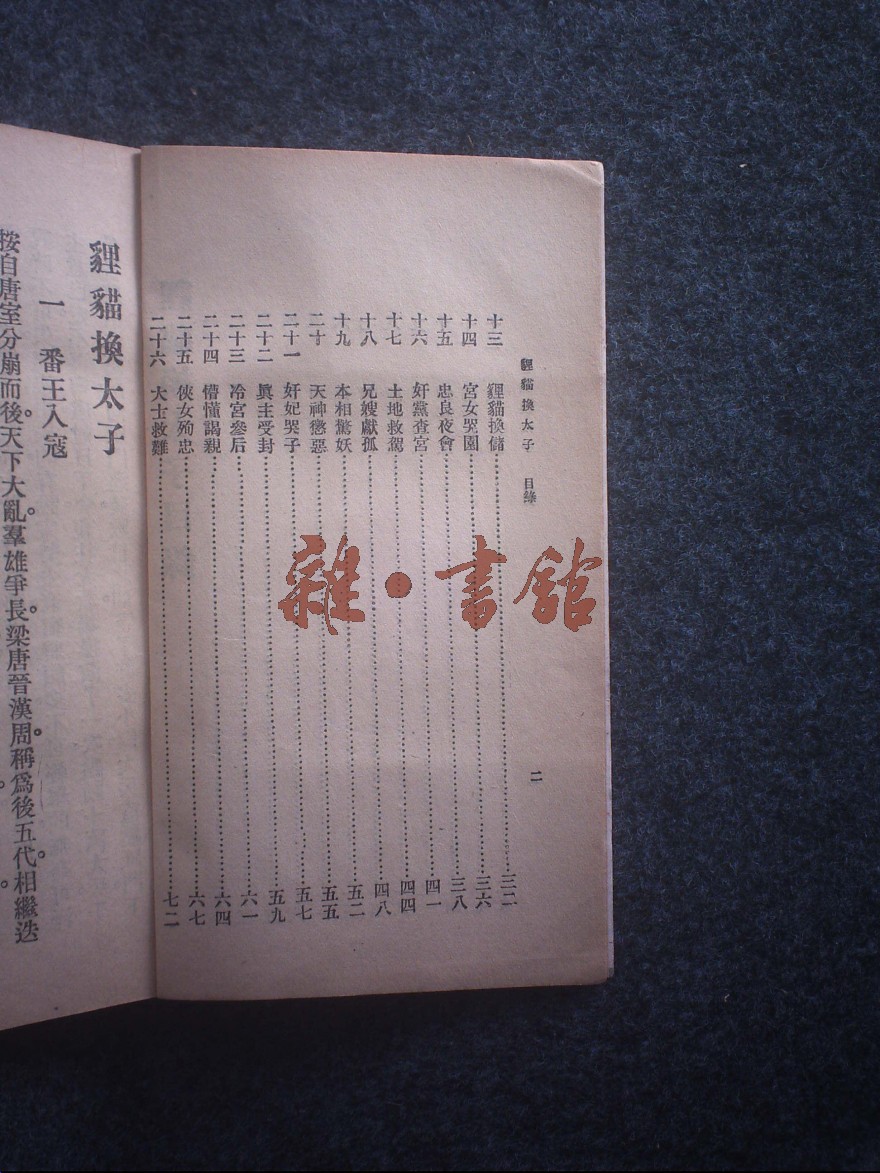 貍貓換太子 目錄 二
十三 貍貓換儲 三二
十四 宮女哭園 三六
十五 忠良夜會 三八
十六 奸黨查宮 四一
十七 土地救駕 四四
十八 兄嫂獻孤 四八
十九 本相驚妖 五二
二十 天神懲惡 五五
二十一 奸妃哭子 五七
二十二 眞主受封 五九
二十三 冷宮參后 六一
二十四 懵懂謁親 六四
二十五 俠女殉忠 六七
二十六 大士救難 七二
貍貓換太子
一 番王入寇
按自唐室分崩而後。天下大亂。羣雄爭長。梁唐晉漢周。稱爲後五代。相繼迭
雜·書館